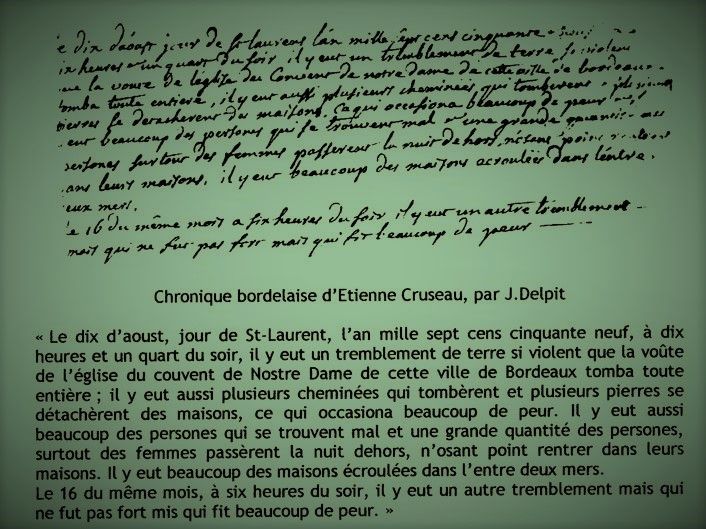 e dix d'aoust jour de St laurens l'an mille sept cens cinquante
heures et un quart du soir, il y eut un tremblement de terre si violent
que la voute de l'eglise du Couvent de notre dame de cette ville de bordeaux
tomba toute entiere, il y eut aussi plusieurs cheminées qui tomberent et plusieurs
pierres se detacherent des maisons, ce qui occasiona beaucoup de peur
eut beaucoup des persones qui se trouvent mal et une grande quantité des
persones surtout des femmes passerent la nuit dehors, n'osant point rentrer
dans leurs maisons. il y eut beaucoup des maisons ecroulées dans l'entre
deux mers.
Le 16 du même mois a six heures du soir il y eut un autre tremblement
mais qui ne fut pas fort mais qui fit beaucoup de peur
Chronique bordelaise d'Etienne Cruseau, par J.Delpit
« Le dix d'aoust, jour de St-Laurent, l'an mille sept cens cinquante neuf, à dix
heures et un quart du soir, il y eut un tremblement de terre si violent que la voûte
de l'église du couvent de Nostre Dame de cette ville de Bordeaux tomba toute
entière ; il y eut aussi plusieurs cheminées qui tombèrent et plusieurs pierres se
détachèrent des maisons, ce qui occasiona beaucoup de peur. Il y eut aussi
beaucoup des persones qui se trouvent mal et une grande quantité des persones,
surtout des femmes passèrent la nuit dehors, n'osant point rentrer dans leurs
maisons. Il y eut beaucoup des maisons écroulées dans l'entre deux mers.
Le 16 du même mois, à six heures du soir, il y eut un autre tremblement mais qui
ne fut pas fort mis qui fit beaucoup de peur. »